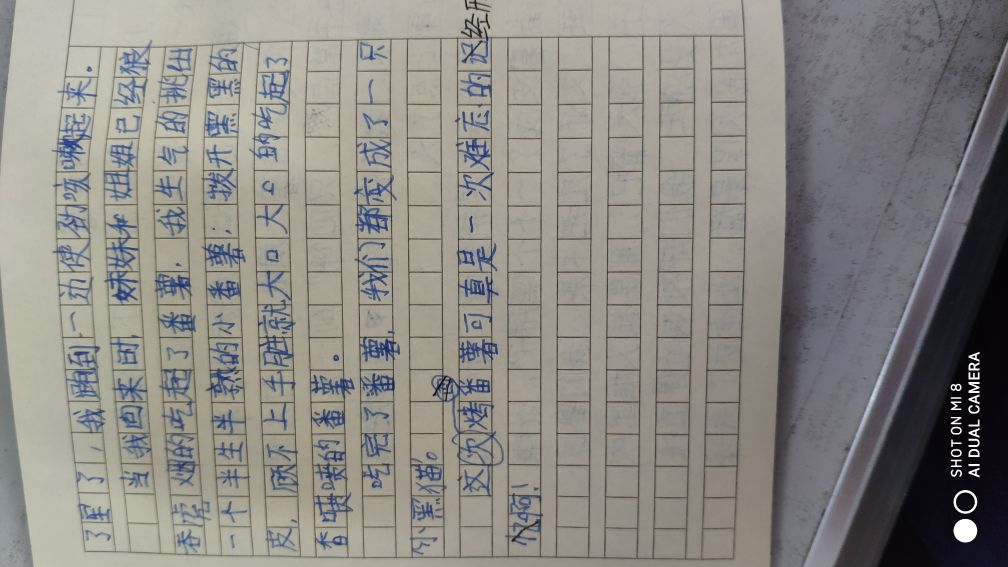 了星了，我跑到一边使劲咳嗽起来。
当我回来时，妹妹和姐姐已经狼
吞虎烟的吃起了番薯，我生气的挑出
一个半生半熟的小番薯；拨开黑黑的
皮，顾不上手脏就大口大口的吃起了
香喷喷的番薯。
吃完了番薯，我们都变成了一只
小黑猫。
这次烤番薯可真是一次难忘的记
忆啊！
SHOT ON MI 8
AI DUAL CAMERA